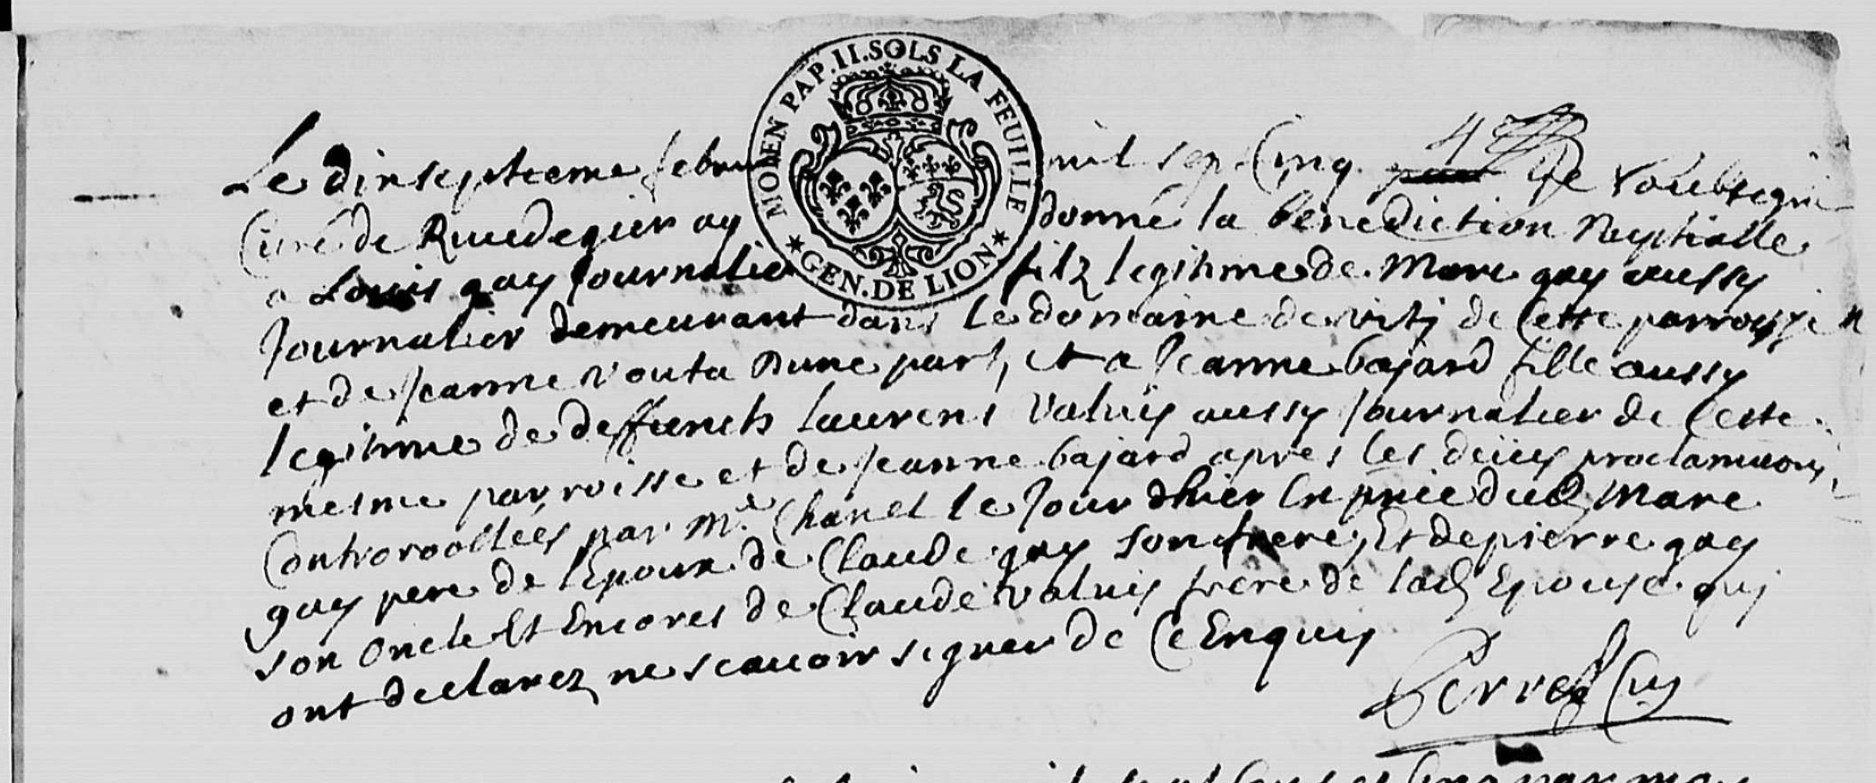 MOIEN PAP. II. SOLS LA FEUILLE * GEN. DE LION *
Le dixseptieme febru mil sept Cinq je soubsigne
Curé de Rivedegier ay donné la benediction Nuptialle
a Louis gay Journalier filz legitime de Marc gay aussy
Journalier demeurant dans le domaine de de Cette parroisse
et de Jeanne vouta Dune part, et a Jeanne bajard fille aussy
legitime de deffunctz laurens Valuis aussy Journalier de Cette
mesme parroisse et de Jeanne bajard apres les deües proclamations
Controollées par Mre Chanel le Jour dhier En pnce dud Marc
gay pere de lEpoux de Claude gay son frere, Et de pierre gay
son oncle Et Encores de Claude valuis frere de lad Epouse quj
ont declarez ne scauoir signer de Ce Enquis